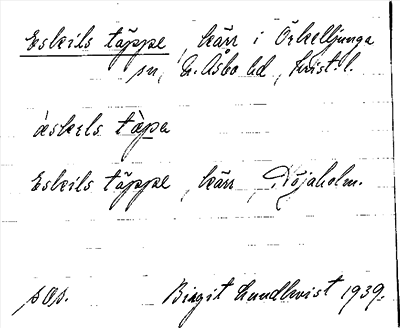 Eskils täppe, kärr i Örkelljunga
sn, N. Åsbo hd, Krist. l.
äskels täpa
Eskils täppe, kärr, Röjaholm.
sOp. Birgit Lundkvist 1939.